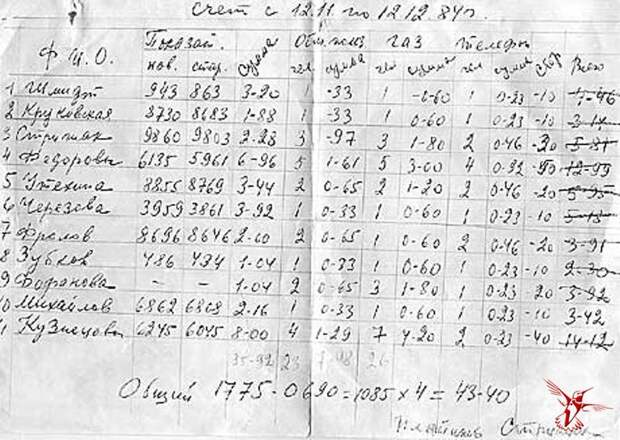 Счет с 12.11 по 12.12.84г.
Показат. Общ. польз газ телефон
Ф.И.О. нов. стар. сумма чел сумма чел сумма чел сумма Всего
1 Шмидт 943 863 3-20 1 -33 1 -0-60 1 0-23 -10
2 Круковская 8730 8683 1-88 1 -33 1 0-60 1 0-23 -10 3-14
3 Стрижак 9860 9803 2-28 3 -97 3 1-80 2 0-46 -20 5-81
4 Федоровы 6135 5961 6-96 5 1-61 5 3-00 4 0-92 12-99
5 Утехина 8855 8769 3-44 2 0-65 2 1-20 2 0-46 -20 5-95
6 Черезова 3959 3861 3-92 1 0-33 1 0-60 1 0-23 -10 5-18
7 Фролов 8696 8646 2-00 2 0-65 1 0-60 2 0-46 -20 3-91
8 Зубков 486 434 1-04 1 0-33 1 0-60 1 0-23 -10 2-30
9 - - 1-04 2 0-65 3 1-80 1 0-23 20 3-92
10 Михайлов 6862 6808 2-16 1 0-33 1 0-60 1 0-23 -10 3-42
11 Кузнецовы 6245 6045 8-00 4 1-29 7 4-20 2 0-23 -40 14-12
35-92 23 26
Общий 1775-0690=1085х4=43-40